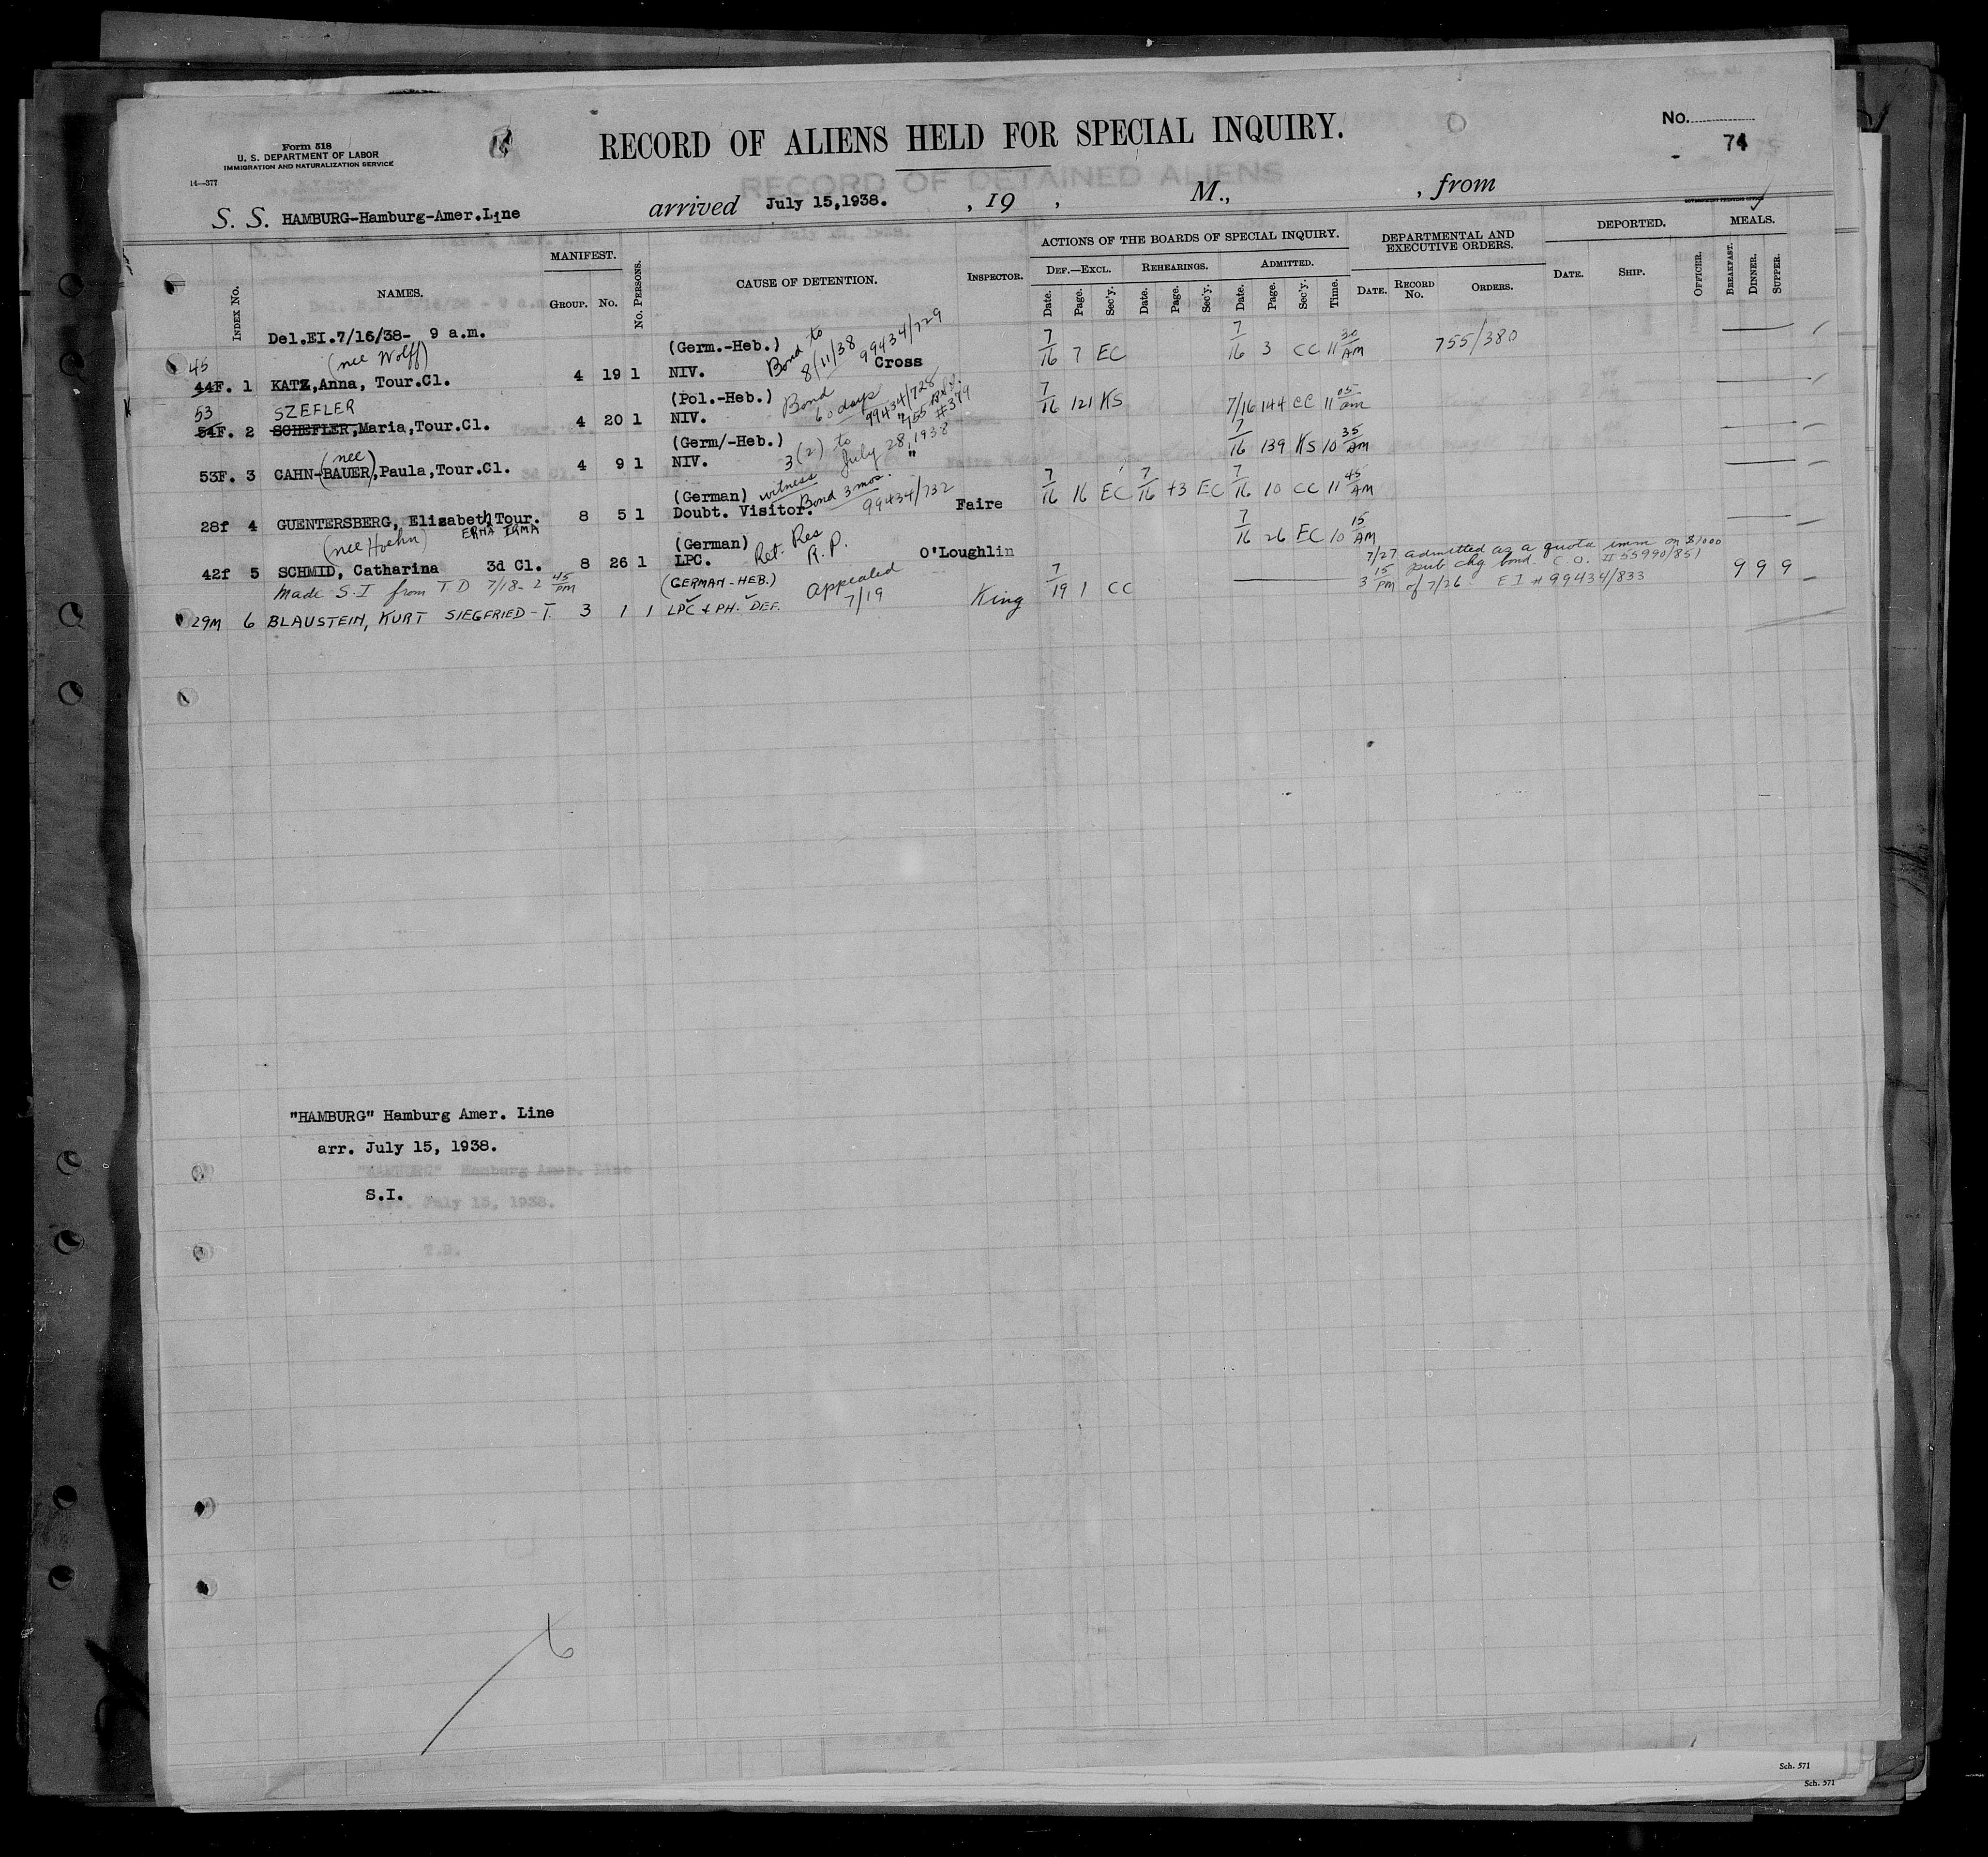 Form 518
U. S. DEPARTMENT OF LABOR
IMMIGRATION AND NATURALIZATION SERVICE
14—377
RECORD OF ALIENS HELD FOR SPECIAL INQUIRY.
No.
74
RECORD OF DETAINED ALIENS
S. S. HAMBURG-Hamburg-Amer.Line arrived July 15,1938. , 19 , M., , from
INDEX No. NAMES. MANIFEST. GROUP. No. No. PERSONS. CAUSE OF DETENTION. INSPECTOR. ACTIONS OF THE BOARDS OF SPECIAL INQUIRY. DEPARTMENTAL AND EXECUTIVE ORDERS. DEPORTED. MEALS.
DEF.—EXCL. REHEARINGS. ADMITTED.
Date. Page. Sec'y. Date. Page. Sec'y. Date. Page. Sec'y. Time. DATE. RECORD No. ORDERS. DATE. SHIP. OFFICER. BREAKFAST. DINNER. SUPPER.
Del.EI.7/16/38- 9 a.m.
45 (nee Wolff) (Germ.-Heb.) Bond to 8/11/38 99434/729
44F. 1 KATZ,Anna, Tour.Cl. 4 19 1 NIV. Cross 7/16 7 EC 7/16 3 CC 11 30 AM 755/380
53 SZEFLER (Pol.-Heb.) Bond 60 days 99434/728
54F. 2 SCHEFLER,Maria,Tour.Cl. 4 20 1 NIV. " 755 #379 7/16 121 KS 7/16 144 CC 11 05 am
(nee) (Germ/-Heb.) 3(2) to July 28, 1938
53F. 3 CAHN-(BAUER),Paula,Tour.Cl. 4 9 1 NIV. " 7/16 139 KS 10 35 AM
(German) witness Bond 3 mos. 99434/732
28f 4 GUENTERSBERG, Elizabeth Tour. 8 5 1 Doubt. Visitor. Faire 7/16 16 EC 7/16 +3 EC 7/16 10 CC 11 45 AM
(nee Hoehn) ERMA IRMA (German) Ret. Res R.P.
42f 5 SCHMID, Catharina 3d Cl. 8 26 1 LPC. O'Loughlin 7/16 26 EC 10 15 AM
Made S.I from T.D 7/18-2 45 PM (GERMAN-HEB.) Appealed 7/19
29M 6 BLAUSTEIN, KURT SIEGFRIED-T. 3 1 1 LPC & PH. DEF. King 7/19 1 CC
7/27 admitted as a quota imm on $1000
15 pub chg bond. C.O. # 55990/851
3 PM of 7/26 E I # 99434/833 9 9 9
"HAMBURG" Hamburg Amer. Line
arr. July 15, 1938.
"HAMBURG" Hamburg Amer. Line
S.I.
arr. July 15, 1938.
T.D.
6
Sch. 571
Sch. 571